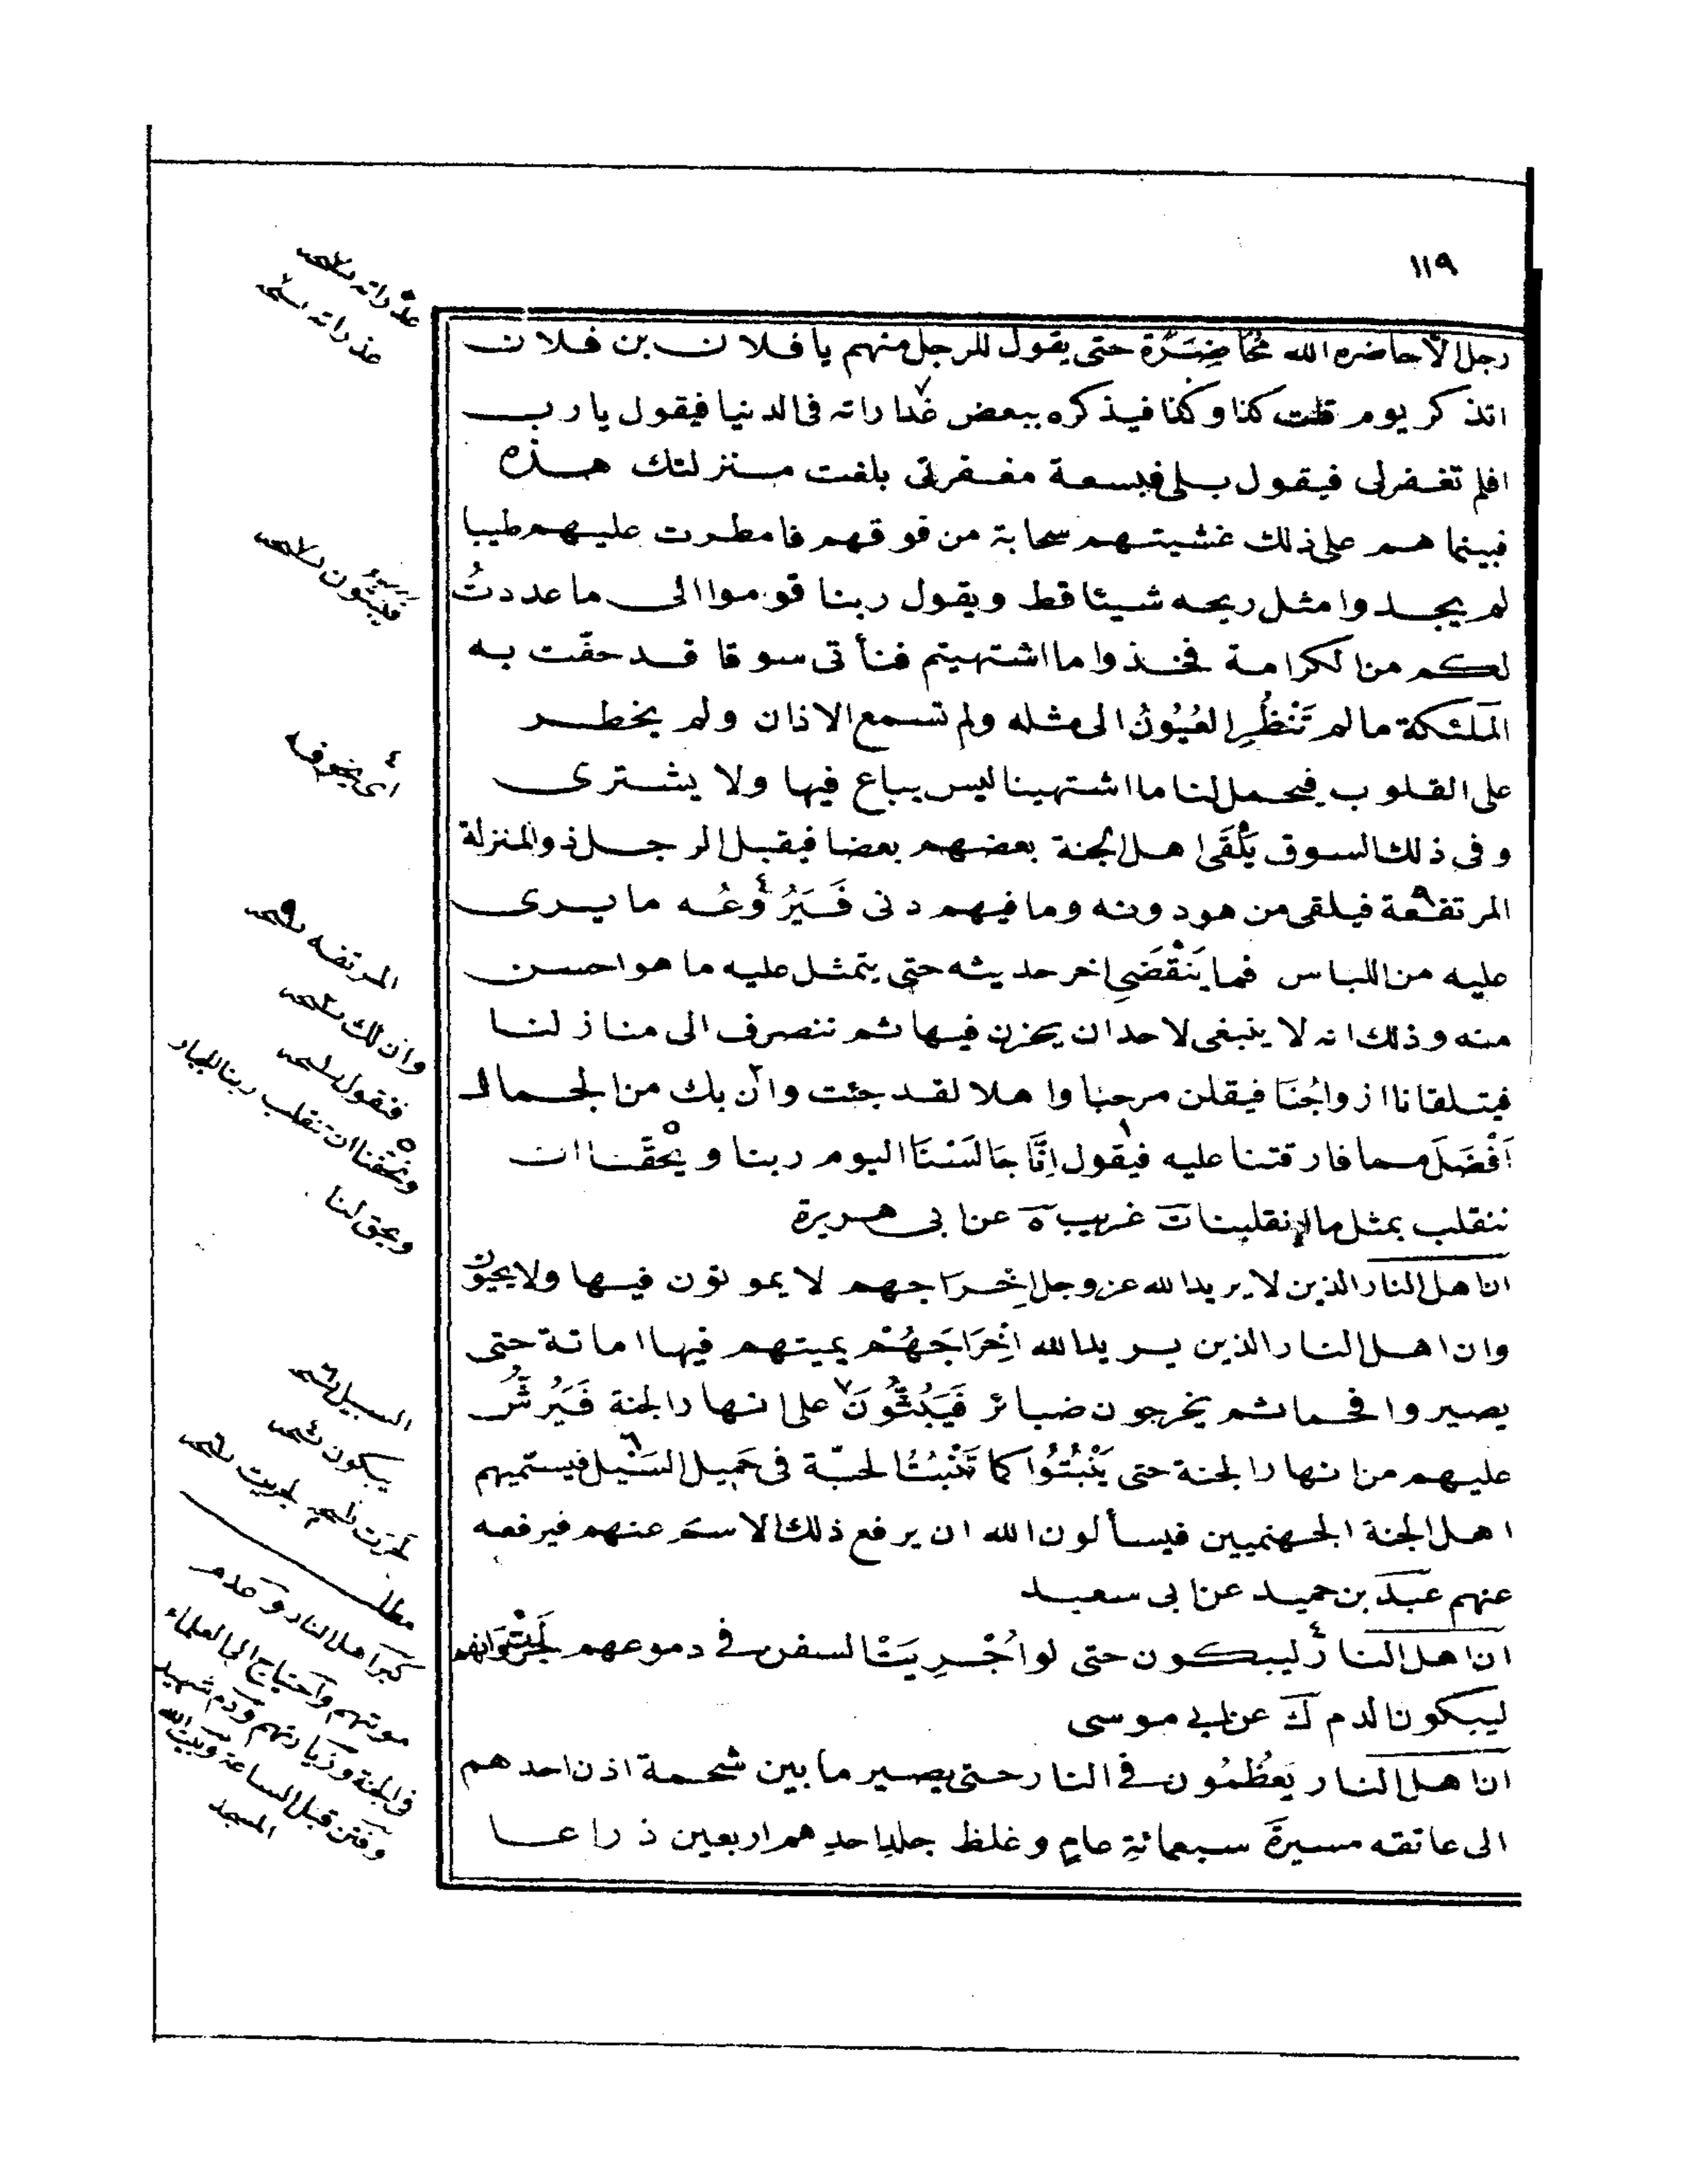 ١١٩
رجل الا حاضره الله مُحَاضَرَة حتى يقول للرجل منهم يا فلان بن فلان
اتذكر يوم قلت كذا وكذا فيذكره ببعض غدراته فى الدنيا فيقول يا رب
افلم تغفر لى فيقول بلى فبسعة مغفرتى بلغت منزلتك هذه
فبينما هم على ذلك غشيتهم سحابة من فوقهم فامطرت عليهم طيبا
لم يجدوا مثل ريحه شيئا قط ويقول ربنا قوموا الى ما عددتُ
لكم من الكرامة فخذوا ما اشتهيتم فنأتى سوقا قد حفّت به
الملئكة ما لم تَنْظُرِ العُيُونُ الى مثله ولم تسمع الاذان ولم يخطر
على القلوب فيحمل لنا ما اشتهينا ليس يباع فيها ولا يشترى
وفى ذلك السوق يَلْقَى اهل الجنة بعضهم بعضا فيقبل الرجل ذو المنزلة
المرتفعة فيلقى من هو دونه وما فيهم دنى فَيَرُوعُه ما يرى
عليه من اللباس فما يَنْقَضِى اخر حديثه حتى يتمثل عليه ما هو احسن
منه وذلك انه لا ينبغى لاحد ان يحزن فيها ثم ننصرف الى منازلنا
فيتلقانا ازواجُنَا فيقلن مرحبا واهلا لقد جئت وان بك من الجمال
اَفْضَلَ مما فارقتنا عليه فيقول اِنَّا جَالَسْنَا اليوم ربنا ويحقّنا ان
ننقلب بمثل ما انقلبنا ت غريب ه عن ابى هريرة
ان اهل النار الذين لا يريد الله عز وجل اِخْرَاجهم لا يموتون فيها ولا يحيون
وان اهل النار الذين يريد الله اِخْرَاجَهُمْ يميتهم فيها اماتة حتى
يصيروا فحما ثم يخرجون ضبائر فَيُبَثُّونَ على انهار الجنة فَيُرَشُّ
عليهم من انهار الجنة حتى يَنْبُتُوا كما تَنْبُتُ الحبّة فى حَمِيل السَّيْل فيسميهم
اهل الجنة الجهنميين فيسألون الله ان يرفع ذلك الاسم عنهم فيرفعه
عنهم عبد بن حميد عن ابى سعيد
ان اهل النار ليبكون حتى لو اُجْرِيَتْ السفن فى دموعهم لَجَرَتْ وانهم
ليبكون الدم ك عن ابى موسى
ان اهل النار يَعْظُمُون فى النار حتى يصير ما بين شحمة اذن احدهم
الى عاتقه مسيرةَ سبعمائةِ عامٍ وغلظ جلدِ احدِهم اربعين ذراعا
اى يخوفه
المرتفعه
وان لك
فنقول
ويحقنا ان ننقلب ربنا الجبار
ويحق لنا
السيل
يبكون
مطلب
كبر اهل النار وعدم
موتهم واحتياج الى العلماء
فى الجنة وزيارتهم ودم شهيد
وفتن قبل الساعة وبيت الله
المسجد